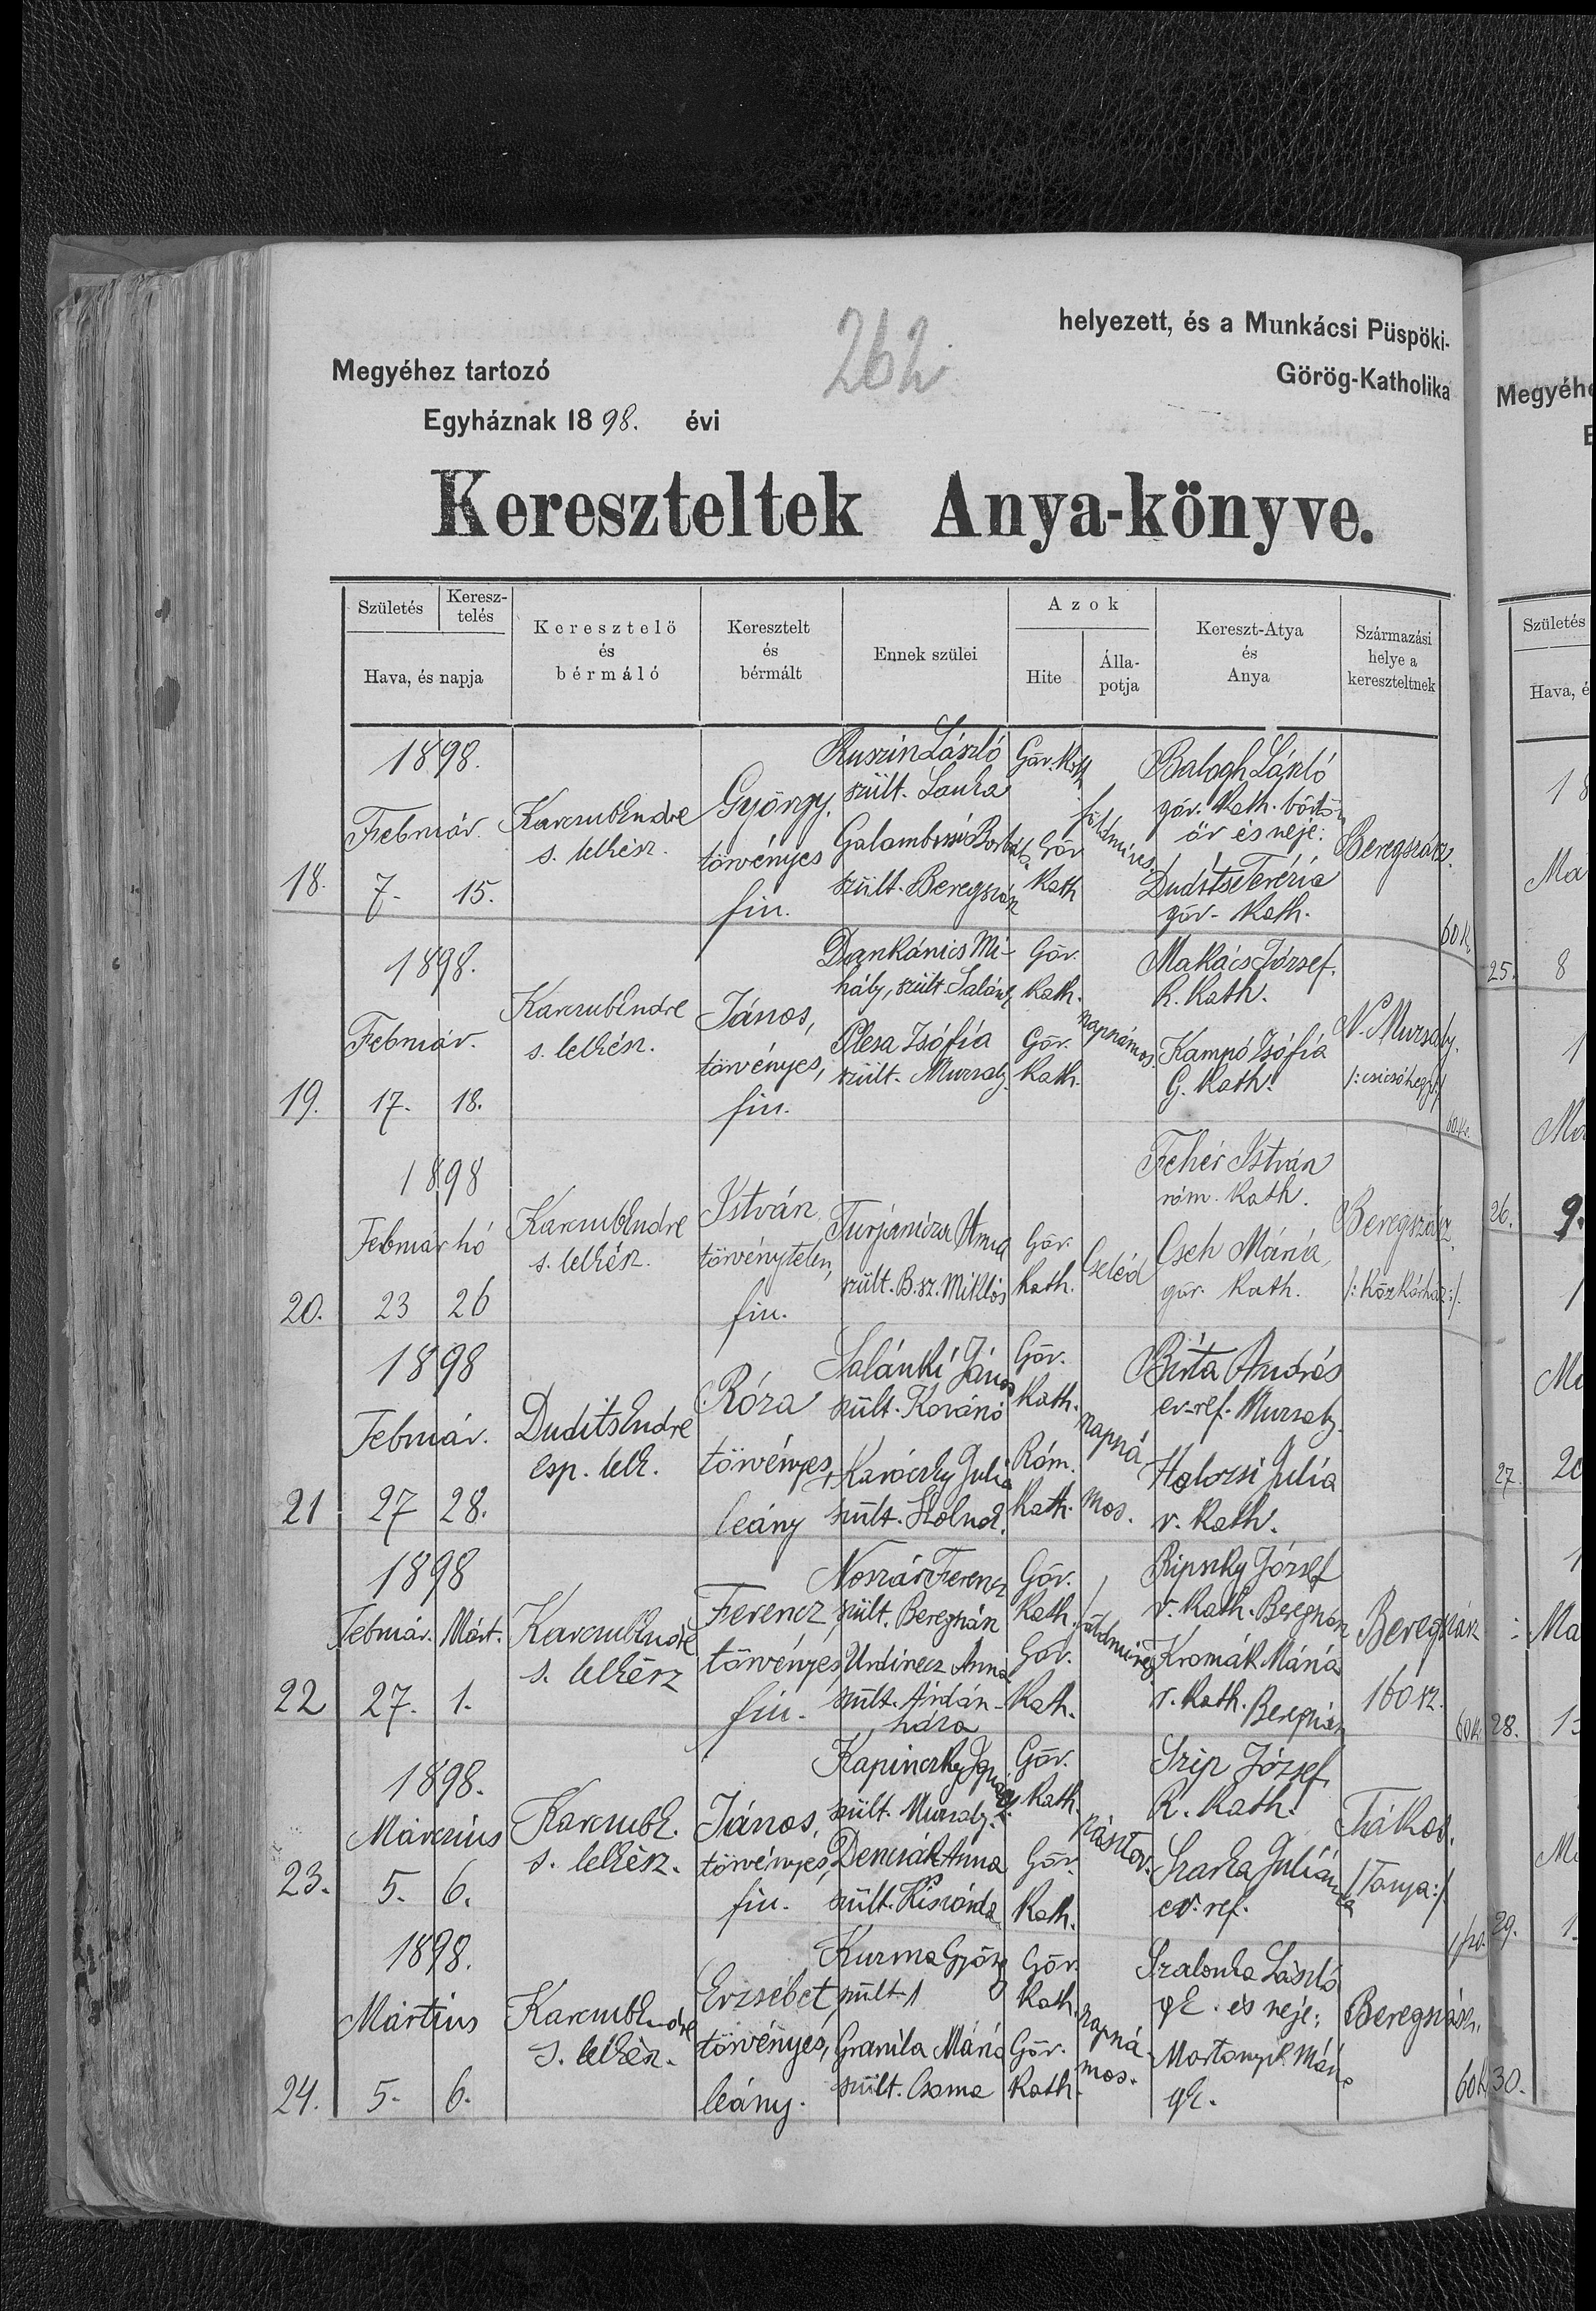 262
helyezett, és a Munkácsi Püspöki-
Megyéhez tartozó
Görög-Katholika
Egyháznak 1898. évi
Kereszteltek Anya-könyve.
Születés
Keresz-
telés
Hava, és napja
Keresztelő
és
bérmáló
Keresztelt
és
bérmált
Ennek szülei
Azok
Hite
Álla-
potja
Kereszt-Atya
és
Anya
Származási
helye a
kereszteltnek
18.
1898.
Február.
7. 15.
Endre
s. lelkész.
György,
törvényes
fiu.
Ruszin László
szült.
szült. Beregszász
Gör. Kath
Gör
Kath
földmíves.
Balogh László
gör. Kath. börtön
őr és neje:
Terézia
gör. Kath.
Beregszász.
60 k.
19.
1898.
Február.
17. 18.
Endre
s. lelkész.
János,
törvényes,
fiu.
Dankánics Mi-
hály, szült. Salánk
Plesa Zsófia
szült. Muzsaly.
Gör.
Kath.
Gör.
Kath.
napszámos.
Makács József.
R. Kath.
Kampó Zsófia
G. Kath.
N. Muzsaly.
60 k.
20.
1898
Február hó
23 26
Endre
s. lelkész.
István
törvénytelen,
fiu.
Turjanicza Anna
szült. B. sz. Miklós
Gör.
Kath.
Cseléd
Fehér István
róm. Kath.
Cseh Mária,
gör. Kath.
Beregszász.
/: Közkórház :/.
21
1898
Február.
27 28.
Dudits Endre
esp. lelk.
Róza
törvényes,
leány
Salánki János
szült.
Julia
szült.
Gör.
Kath.
Róm.
Kath.
napszá
mos.
Birta András
ev. ref. Muzsaly.
Halozsi Julia
r. Kath.
22
1898
Február. Márt.
27. 1.
Endre
s. lelkész
Ferencz,
törvényes,
fiu.
Noszár Ferencz
szült. Beregszász
Anna
szült. Ardán-
háza
Gör.
Kath.
Gör.
Kath.
földmíves
Ripszky József
r. Kath. Beregszász
Kromák Mária
r. Kath. Beregszász
Beregszász
160 sz.
60 k.
23.
1898.
Márczius
5. 6.
s. lelkész.
János,
törvényes,
fiu.
Kapinczky Ignácz
szült. Muzsaly.
Demcsák Anna
szült. Kisvárda
Gör.
Kath.
Gör.
Kath.
pásztor.
Szip József,
R. Kath.
Szarka Juliánna
ev. ref.
Tákos.
/Tanya:/
24.
1898.
Mártius
5. 6.
Endre
s. lelkész.
Erzsébet,
törvényes,
leány.
Kurma György
szült.
Granila Mária
szült. Csoma
Gör.
Kath.
Gör.
Kath.
napszá
mos.
Szalonka László
gk. és neje:
Martonyik Mária
gk.
Beregszász.
60 k
Megyéhe
Születés
Hava, é
25. 8
26. 9.
27.
28.
29. 1.
30.